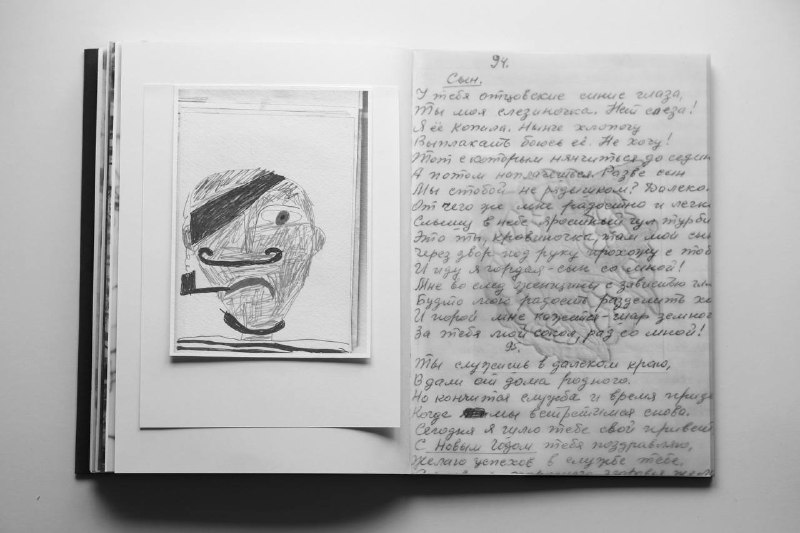 94.
Сын.
У тебя отцовские синие глаза,
Ты моя слезиночка. Ней слеза!
Я её копила. Нынче хлопочу
Выплакать боюсь её. Не хочу!
Тот с которым нянчиться до седин
А потом наплачешься. Разве сын
Мы с тобой не рядышком? Далеко.
От чего же мне радостно и легк
Слышу в небе яростный гул турби
Это ты, кровиночка, там мой сын
Через двор под руку прохожу с тоб
И иду я гордая - сын со мной!
Мне во след женщины с завистью гл
Будто мою радость разделить хо
И порой мне кажется - шар земног
За тебя мой сокол, раз со мной!
Ты служишь в далёком краю,
Вдали от дома родного.
Но кончится служба и время приде
Когда мы встретимся снова.
Сегодня я шлю тебе свой привет
С Новым годом тебя поздравляю,
Желаю успехов в службе тебе,